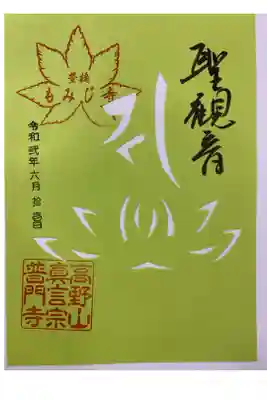 聖観音
豊橋
もみじ寺
令和弐年六月拾
高野山
真言宗
普門寺